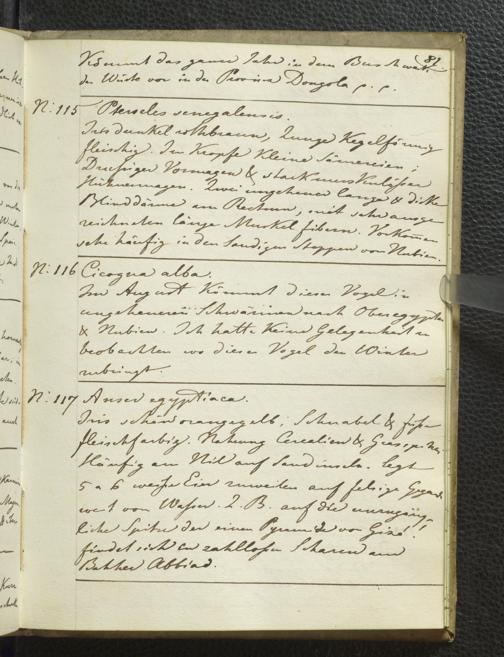 81
Kömmt das ganze Jahr in dem Buschwald
der Wüste vor in der Provinz Dongola p. p.
N: 115 Pterocles senegalensis.
Iris dunkel rothbraun, Zunge Kegelförmig
fleischig. Im Kropfe kleine Sämereien;
Drüsiger Vormagen & starken
Hühnermagen. Zwei ungeheuer lange & dicke
Blinddärme am Rectum, mit sehr ausge
zeichneten länge Muskelfibern. Vorkomen
sehr häufig in den sandigen Steppen von Nubien.
N: 116 Cicogna alba.
Im August kömmt dieser Vogel in
ungeheueren Schwärmen nach Oberegypten
& Nubien. Ich hatte keine Gelegenheit zu
beobachten wo dieser Vogel den Winter
zubringt.
N: 117 Anser egyptiaca.
Iris schön orangegelb; Schnabel & füße
fleischfarbig. Nahrung Cerealien &
Häufig am Nil auf Sandinseln. Legt
5 a 6 weiße Eier zuweilen auf felsige
weit von Wasser. Z. B. auf die unzugäng
liche Spitze der einen Pyramide von Gizé!!
findet sich in zahllosen Scharen am
Bahher Abbiad.